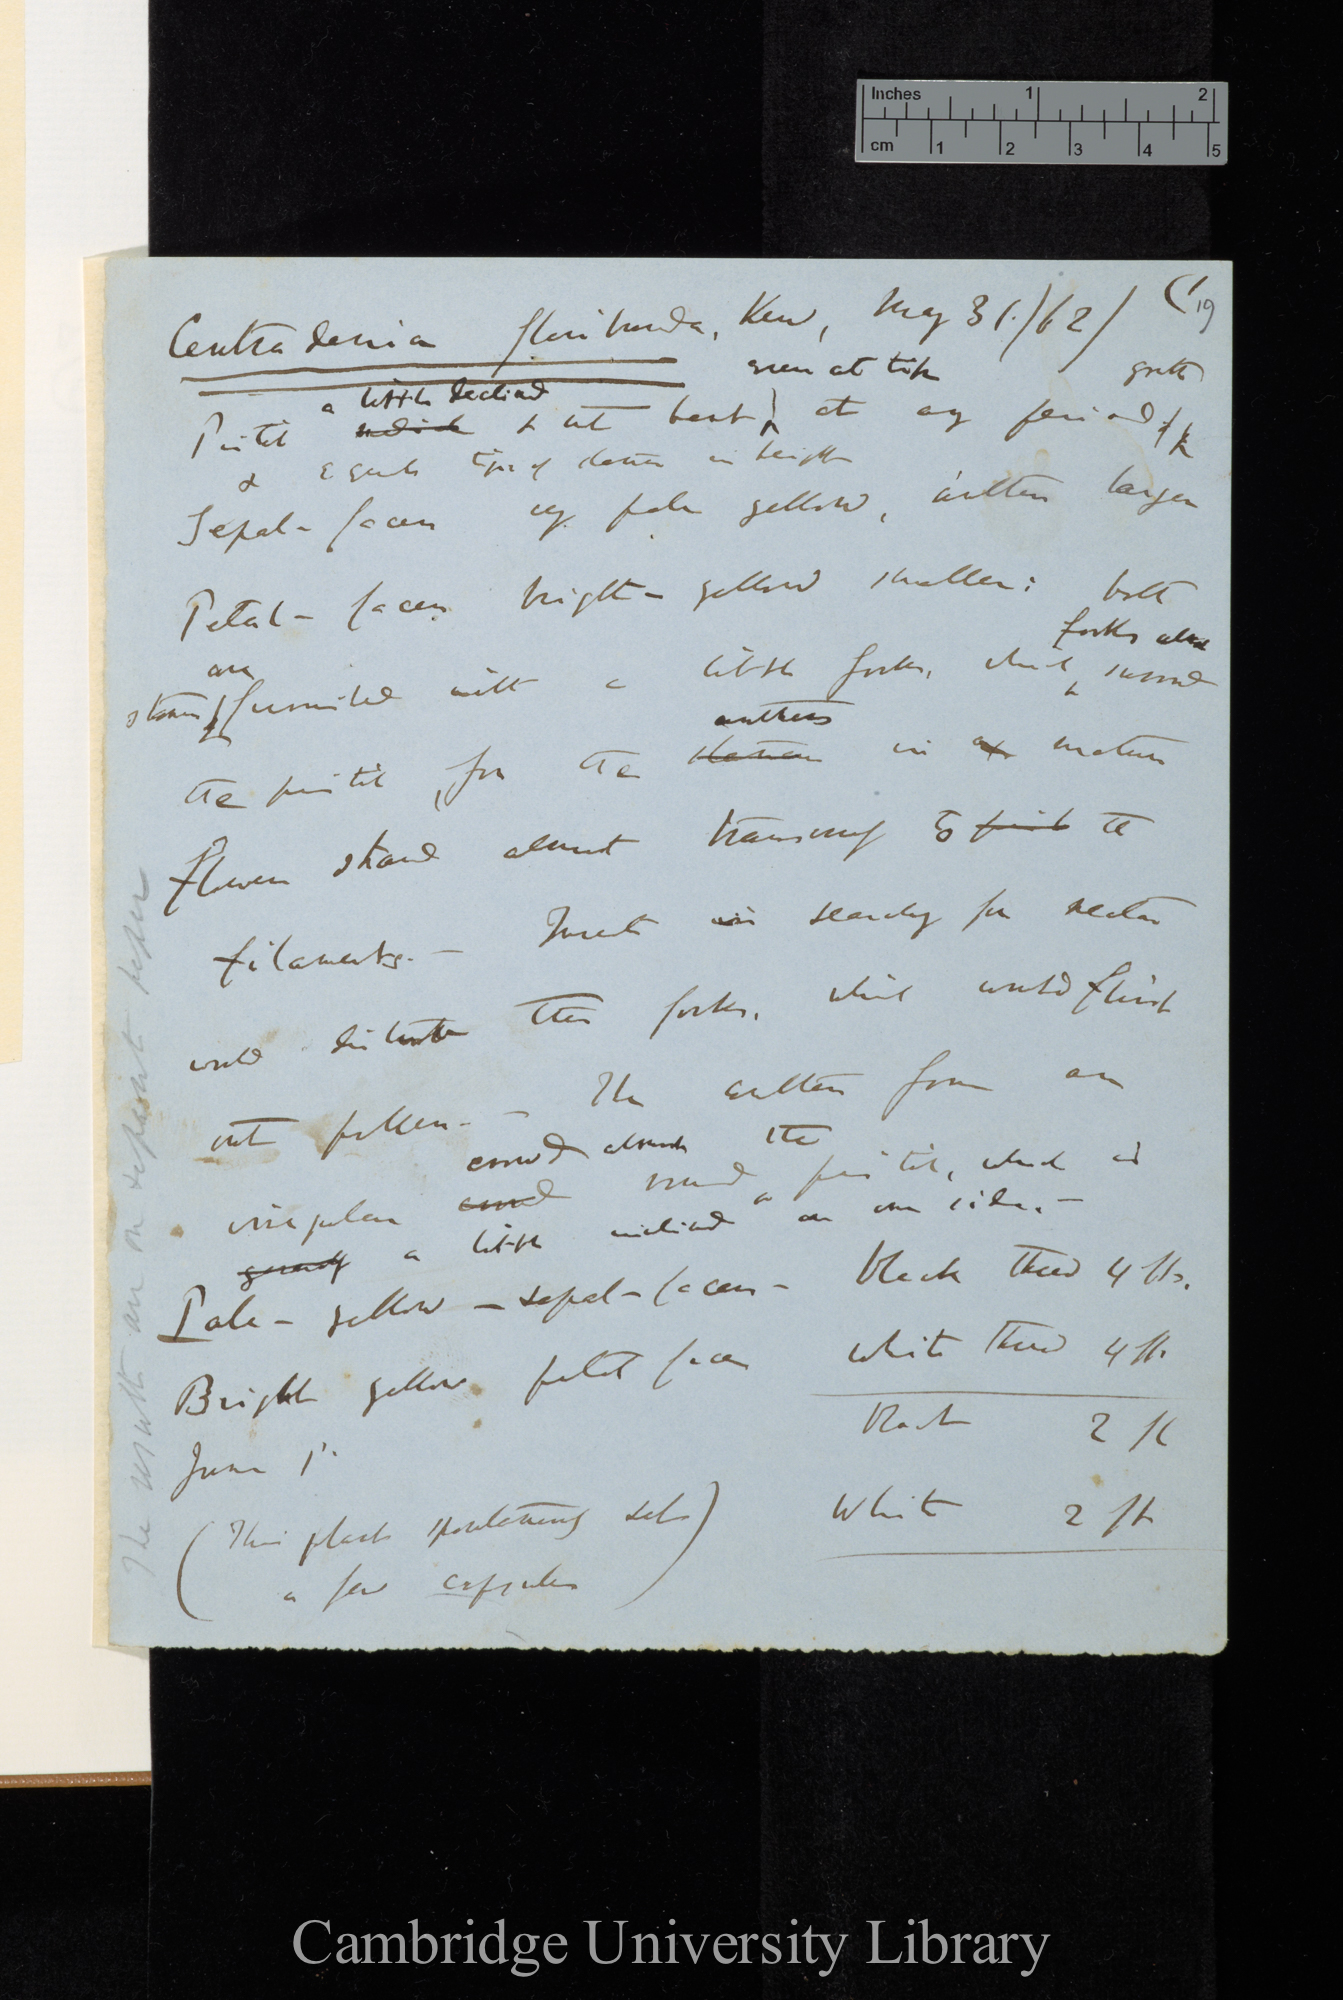 Inches 1 2
cm 1 2 3 4 5
(1
19
Centradenia floribunda, Kew, May 31./62/
a little declined even at tip growth
Pistil & not bent at any period of
& equals tips of stamens in height
Sepal-facers very pale yellow, anthers larger
Petal-facers bright-yellow smaller: both
are forks almost
stamens furnished with a little fork, which surround
anthers
the pistil, for the stamen in a mature
flower stand almost transversely to the
filaments. — Insects in searching for nectar
would disturb these forks, which would flirt
out pollen. — The anthers form an
crowd almost the
irregular crowd round a pistil, which is
a little inclined on one side. —
Pale-yellow — sepal-facers — black thread 4 fls.
Bright yellow petal facers white thread 4 fls
June 1st Black 2 fl
(This plant spontaneously sets White 2 fls
a few capsules)
The result are on separate paper
Cambridge University Library